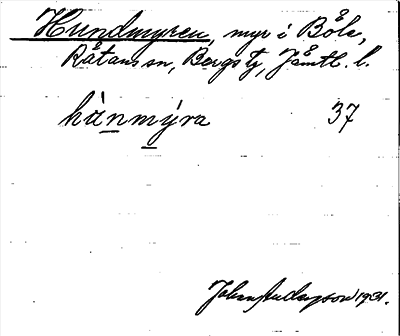 Hundmyren, myr i Böle,
Råtans sn, Bergs tg, Jämtl. l.
hùnmýra 37
John Anderson 1931.